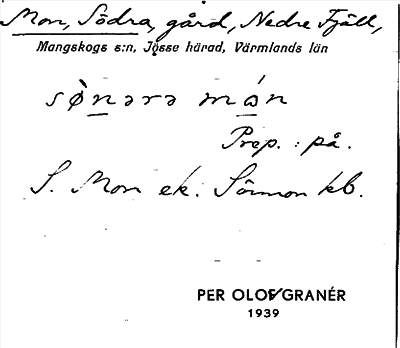 Mon, Södra, gård, Nedre Fjäll,
Mangskogs s:n, Jösse härad, Värmlands län
sø̀nərə mɷ́n
Prep. : på.
S. Mon ek. Sörmon kb.
PER OLOF GRANÉR
1939